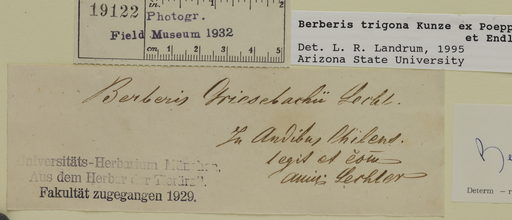 19122
in.
Photogr.
Field Museum 1932
cm 1 2 3 4 5
Berberis trigona Kunze ex Poepp
et Endl
Det. L. R. Landrum, 1995
Arizona State University
Berberis Griesebachii Lechl.
In Andibus Chilens.
legit et com
amic. Lechler
Universitäts-Herbarium München.
Aus dem Herbar der Tierärztl.
Fakultät zugegangen 1929.
Be
Determ